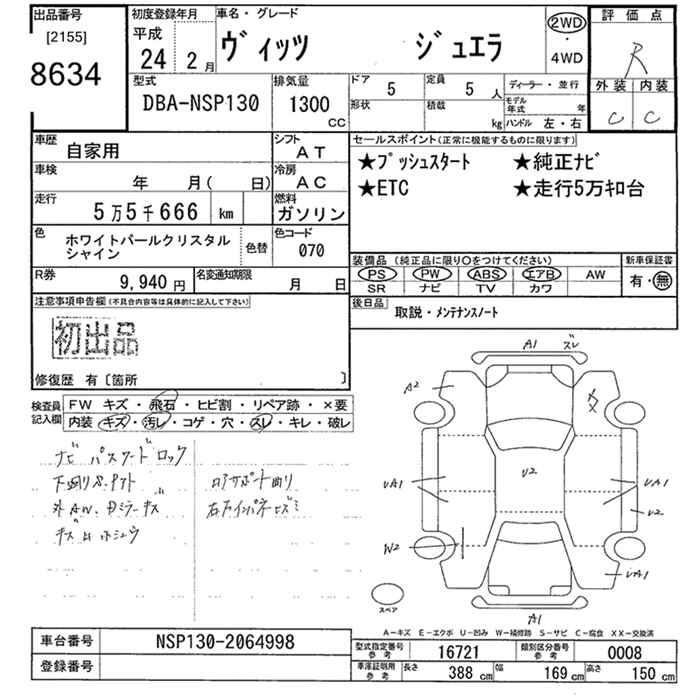 出品番号
[2155]
8634
初度登録年月
平成
24年 2月
車名・グレード
ヴィッツ ジュエラ
2WD
・
4WD
評価点
R
外装 内装
C C
型式
DBA-NSP130
排気量
1300
CC
ドア 5
定員 5人
形状
積載 kg
ディーラー・並行
モデル年式 年
ハンドル 左・右
車歴
自家用
シフト
AT
車検
年 月( 日)
冷房
AC
走行
5万5千666 km
燃料
ガソリン
色
ホワイトパールクリスタル
シャイン
色替
色コード
070
R券
9,940 円
名変通知期限
月 日
セールスポイント(正常に機能するものに限ります)
★プッシュスタート ★純正ナビ
★ETC ★走行5万キロ台
装備品 (純正品に限り○をつけてください)
PS PW ABS エアB AW
SR ナビ TV カワ
新車保証書
有・無
後日品
取説・メンテナンスノート
注意事項申告欄(不具合内容等は具体的に記入して下さい)
初出品
修復歴 有〔箇所 〕
検査員
記入欄
FW キズ・飛石・ヒビ割・リペア跡・×要
内装 キズ・汚レ・コゲ・穴・スレ・キレ・破レ
ナビ パスワードロック
下廻りS.アト
コアサポート曲り
外AW、Dミラーキズ
右フインパネヒズミ
A1 ズレ
A2
U2
UA1
UA1
U2
W2
UA1
A1
スペア
A-キズ E-エクボ U-凹み W-補修跡 S-サビ C-腐食 XX-交換済
車台番号
NSP130-2064998
登録番号
型式指定番号
参考
16721
類別区分番号
参考
0008
車庫証明用
参考
長さ 388 cm
幅 169 cm
高さ 150 cm